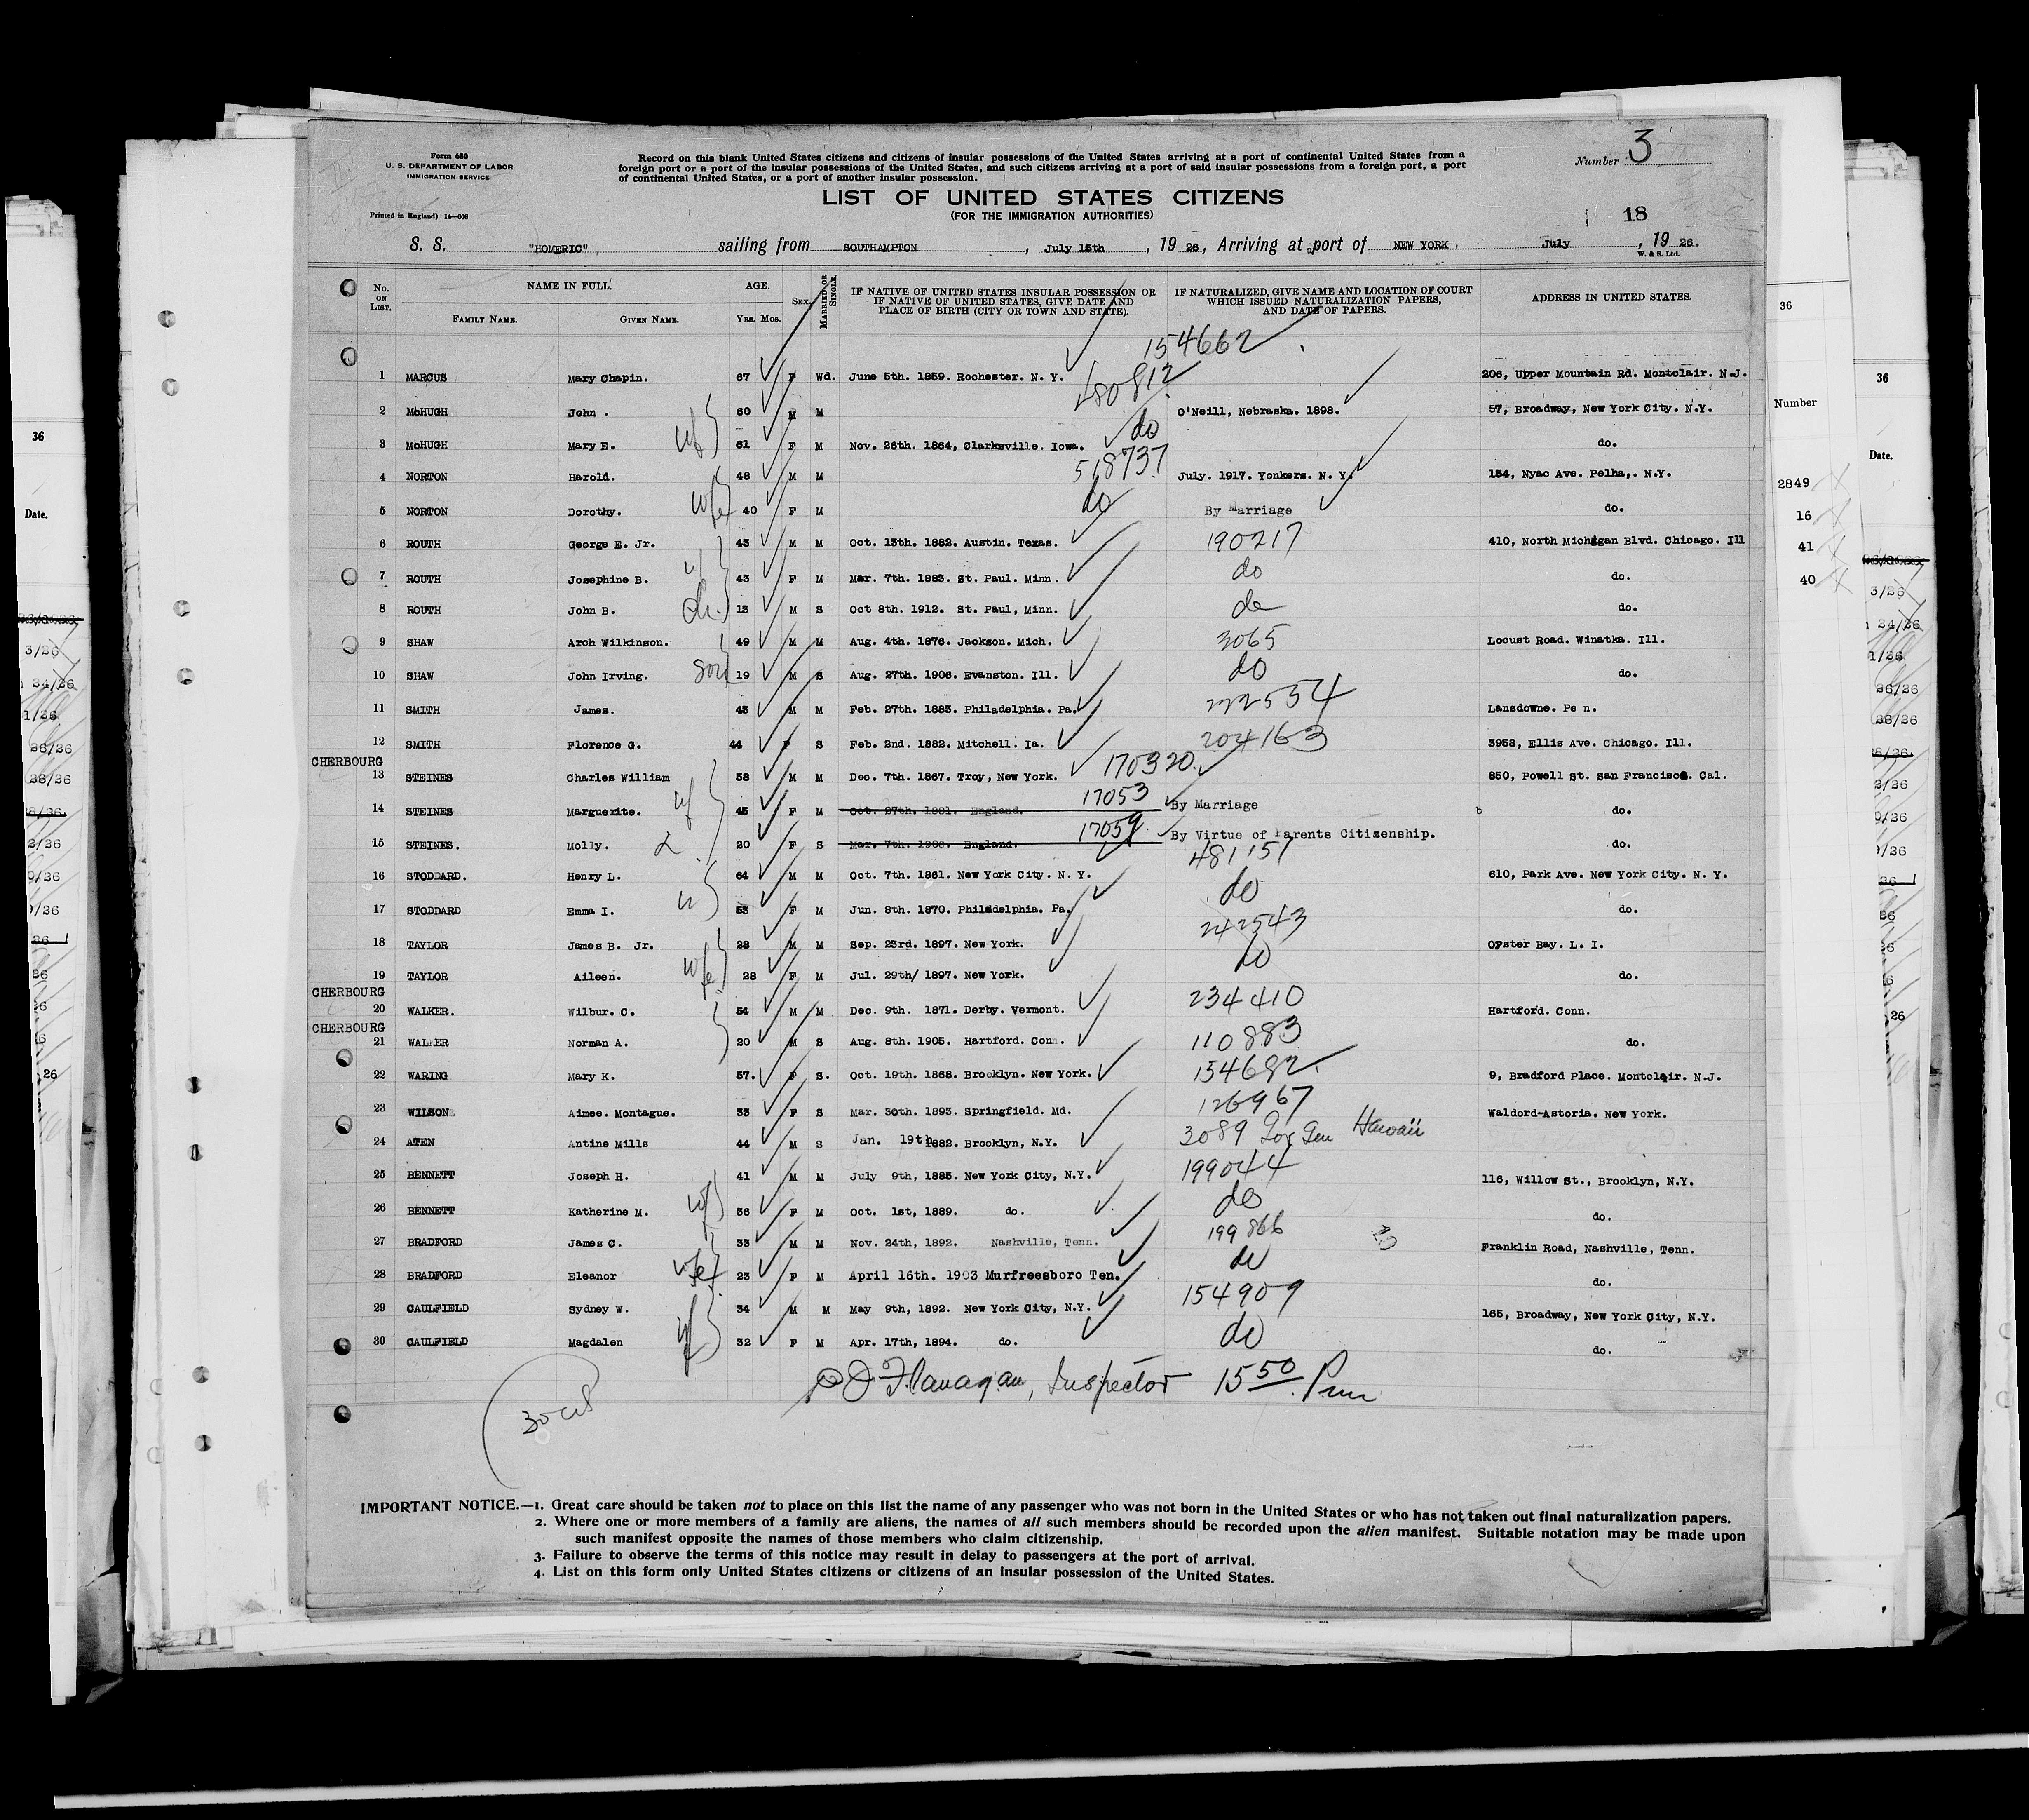 Form 630
U. S. DEPARTMENT OF LABOR
IMMIGRATION SERVICE
Record on this blank United States citizens and citizens of insular possessions of the United States arriving at a port of continental United States from a
foreign port or a port of the insular possessions of the United States, and such citizens arriving at a port of said insular possessions from a foreign port, a port
of continental United States, or a port of another insular possession.
Number 3
LIST OF UNITED STATES CITIZENS
(FOR THE IMMIGRATION AUTHORITIES)
Printed in England) 14—608
18
S. S. "HOMERIC" sailing from SOUTHAMPTON, July 15th, 19 26, Arriving at port of NEW YORK. July, 19 26.
W. & S. Ltd.
No. ON LIST. NAME IN FULL. AGE. SEX. MARRIED OR SINGLE. IF NATIVE OF UNITED STATES INSULAR POSSESSION OR IF NATIVE OF UNITED STATES, GIVE DATE AND PLACE OF BIRTH (CITY OR TOWN AND STATE). IF NATURALIZED, GIVE NAME AND LOCATION OF COURT WHICH ISSUED NATURALIZATION PAPERS, AND DATE OF PAPERS. ADDRESS IN UNITED STATES.
FAMILY NAME. GIVEN NAME. Yrs. Mos.
154662
1 MARCUS Mary Chapin. 67 F Wd. June 5th. 1859. Rochester. N. Y. 206, Upper Mountain Rd. Montclair. N.J.
480812
2 McHUGH John . 60 M M O'Neill, Nebraska. 1898. 57, Broadway, New York City. N.Y.
do
3 McHUGH Mary E. wf 61 F M Nov. 26th. 1864, Clarksville. Iowa. do.
518737
4 NORTON Harold. 48 M M July. 1917. Yonkers. N. Y. 154, Nyac Ave. Pelha,. N.Y.
5 NORTON Dorothy. wfe 40 F M do By Marriage do.
6 ROUTH George E. Jr. 43 M M Oct. 13th. 1882. Austin. Texas. 190217 410, North Michigan Blvd. Chicago. Ill
7 ROUTH Josephine B. wf 43 F M Mar. 7th. 1883. St. Paul. Minn. do do.
8 ROUTH John B. ch. 13 M S Oct 8th. 1912. St. Paul, Minn. do do.
9 SHAW Arch Wilkinson. 49 M M Aug. 4th. 1876. Jackson. Mich. 3065 Locust Road. Winatka. Ill.
10 SHAW John Irving. son 19 M S Aug. 27th. 1906. Evanston. Ill. do do.
11 SMITH James. 43 M M Feb. 27th. 1883. Philadelphia. Pa. 222554 Lansdowne. Pe n.
12 SMITH Florence G. 44 F S Feb. 2nd. 1882. Mitchell. Ia. 204163 3958, Ellis Ave. Chicago. Ill.
CHERBOURG
13 STEINES Charles William 58 M M Dec. 7th. 1867. Troy, New York. 170320 850, Powell St. San Francisco. Cal.
14 STEINES Marguerite. wf 45 F M Oct. 27th. 1881. England. 17053 By Marriage do.
15 STEINES. Molly. d. 20 F S Mar. 7th. 1906. England. 17059 By Virtue of Parents Citizenship. do.
481151
16 STODDARD. Henry L. 64 M M Oct. 7th. 1861. New York City. N. Y. 610, Park Ave. New York City. N. Y.
17 STODDARD Emma I. w 53 F M Jun. 8th. 1870. Philadelphia. Pa. do do.
18 TAYLOR James B. Jr. 28 M M Sep. 23rd. 1897. New York. 242543 Oyster Bay. L. I.
19 TAYLOR Aileen. wfe 28 F M Jul. 29th/ 1897. New York. do do.
CHERBOURG
20 WALKER. Wilbur. C. 54 M M Dec. 9th. 1871. Derby. Vermont. 234410 Hartford. Conn.
CHERBOURG
21 WALKER Norman A. 20 M S Aug. 8th. 1905. Hartford. Conn. 110883 do.
22 WARING Mary K. 57. F S. Oct. 19th. 1868. Brooklyn. New York. 154682 9, Bradford Place. Montclair. N.J.
23 WILSON Aimee. Montague. 33 F S Mar. 30th. 1893. Springfield. Md. 126967 Waldord-Astoria. New York.
24 ATEN Antine Mills 44 M S Jan. 19th 1882. Brooklyn, N.Y. 3089 Gov Gen Hawaii
25 BENNETT Joseph H. 41 M M July 9th, 1885. New York City, N.Y. 199044 116, Willow St., Brooklyn, N.Y.
26 BENNETT Katherine M. wf 36 F M Oct. 1st, 1889. do. do do.
27 BRADFORD James C. 33 M M Nov. 24th, 1892. Nashville, Tenn. 199866 Franklin Road, Nashville, Tenn.
28 BRADFORD Eleanor wfe 23 F M April 16th. 1903 Murfreesboro Ten. do do.
29 CAULFIELD Sydney W. 34 M M May 9th, 1892. New York City, N.Y. 154909 165, Broadway, New York City, N.Y.
30 CAULFIELD Magdalen wf 32 F M Apr. 17th, 1894. do. do do.
P J Flanagan, Inspector 15 50 Pmn
30 US
IMPORTANT NOTICE.—1. Great care should be taken not to place on this list the name of any passenger who was not born in the United States or who has not taken out final naturalization papers.
2. Where one or more members of a family are aliens, the names of all such members should be recorded upon the alien manifest. Suitable notation may be made upon
such manifest opposite the names of those members who claim citizenship.
3. Failure to observe the terms of this notice may result in delay to passengers at the port of arrival.
4. List on this form only United States citizens or citizens of an insular possession of the United States.
36
Number
2849
16
41
40
36
Date.
36
Date.